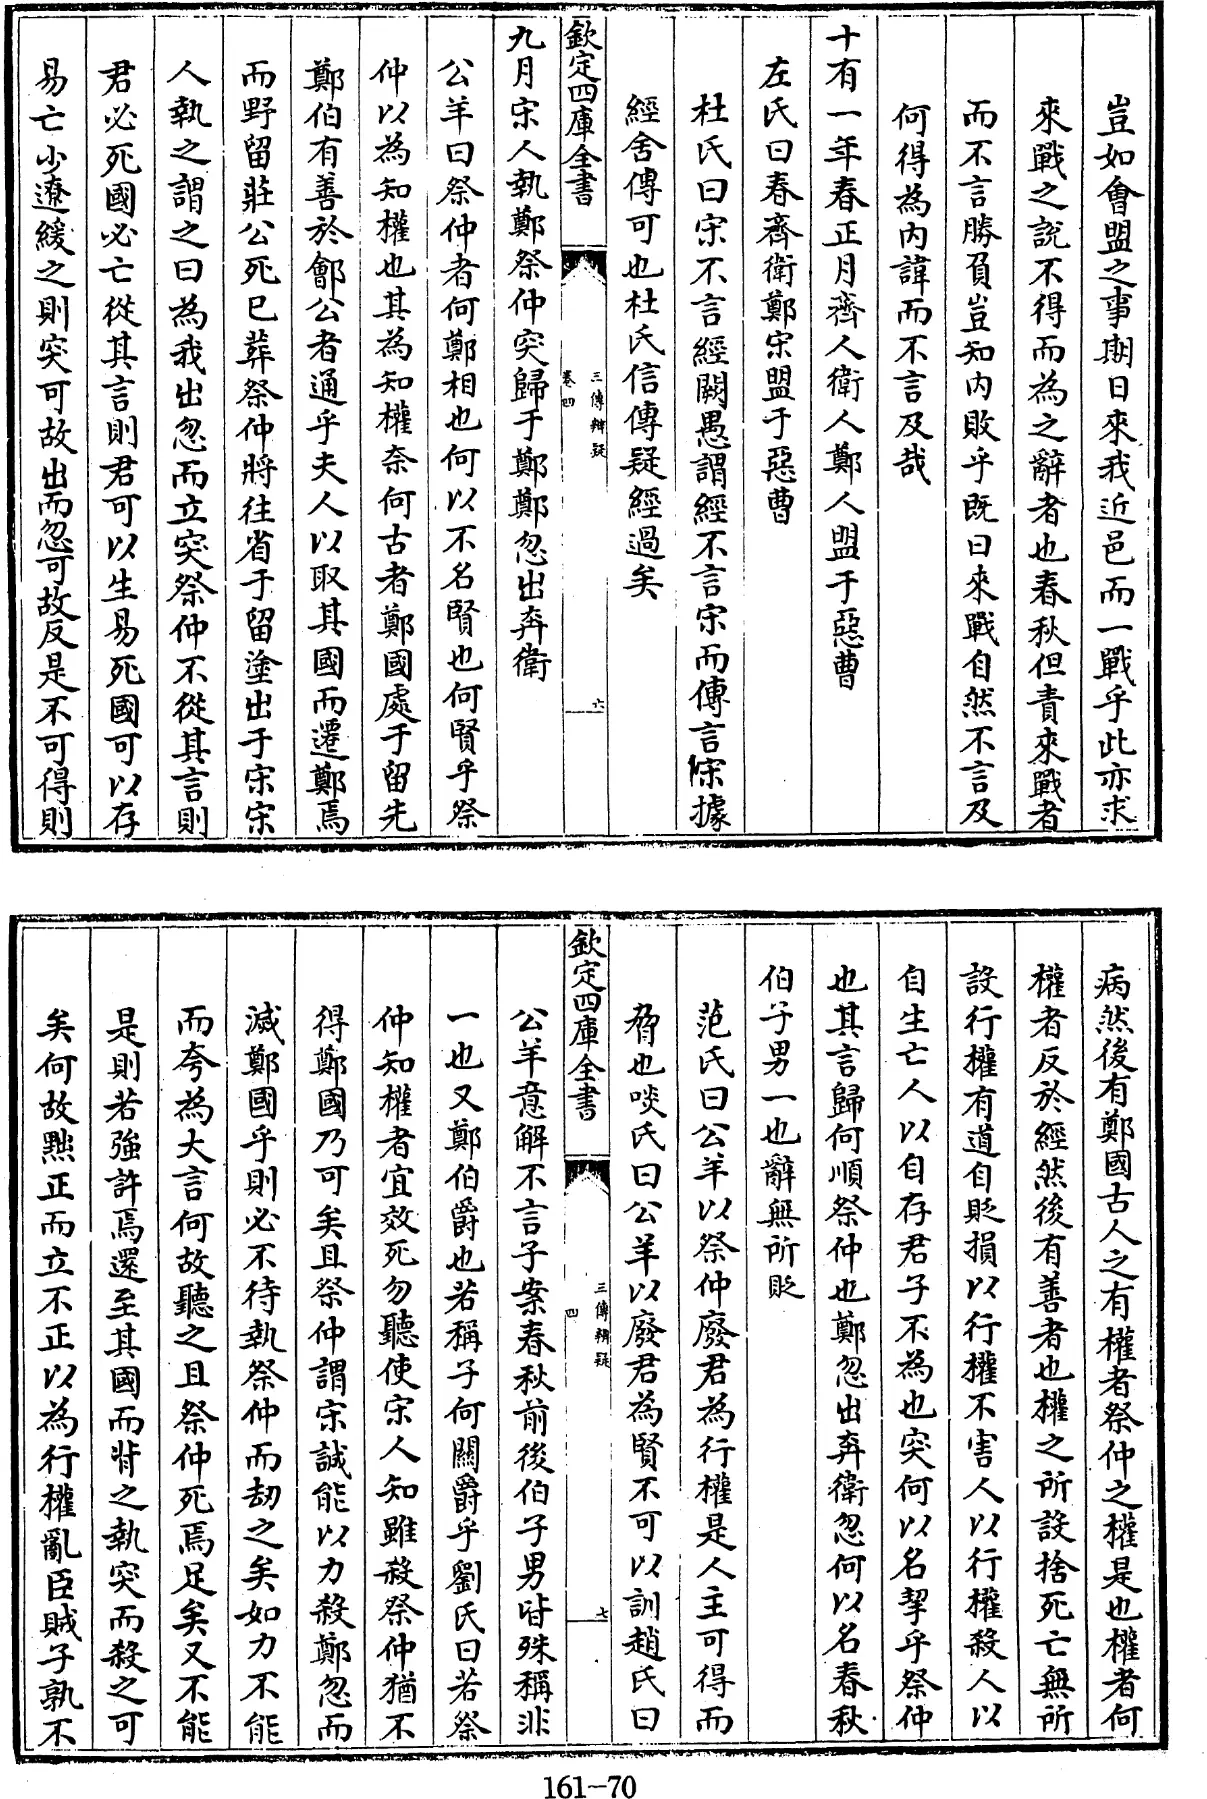 豈如會盟之事期日來我近邑而一戰乎此亦求
來戰之説不得而為之辭者也春秋但責來戰者
而不言勝負豈知内敗乎既曰來戰自然不言及
何得為内諱而不言及哉
十有一年春正月齊人衛人鄭人盟于惡曹
左氏曰春齊衛鄭宋盟于惡曹
杜氏曰宋不言經闕愚謂經不言宋而傳言宋據
經舍傳可也杜氏信傳疑經過矣
欽定四庫全書
三傳辨疑
卷四
六
九月宋人執鄭祭仲突歸于鄭鄭忽出奔衛
公羊曰祭仲者何鄭相也何以不名賢也何賢乎祭
仲以為知權也其為知權奈何古者鄭國處于留先
鄭伯有善於鄶公者通乎夫人以取其國而遷鄭焉
而野留莊公死已葬祭仲將往省于留塗出于宋宋
人執之謂之曰為我出忽而立突祭仲不從其言則
君必死國必亡從其言則君可以生易死國可以存
易亡少遼緩之則突可故出而忽可故反是不可得則
病然後有鄭國古人之有權者祭仲之權是也權者何
權者反於經然後有善者也權之所設捨死亡無所
設行權有道自貶損以行權不害人以行權殺人以
自生亡人以自存君子不為也突何以名挈乎祭仲
也其言歸何順祭仲也鄭忽出奔衛忽何以名春秋
伯子男一也辭無所貶
范氏曰公羊以祭仲廢君為行權是人主可得而
脅也啖氏曰公羊以廢君為賢不可以訓趙氏曰
欽定四庫全書
三傳辨疑
四
七
公羊意解不言子案春秋前後伯子男皆殊稱非
一也又鄭伯爵也若稱子何關爵乎劉氏曰若祭
仲知權者宜效死勿聽使宋人知雖殺祭仲猶不
得鄭國乃可矣且祭仲謂宋誠能以力殺鄭忽而
滅鄭國乎則必不待執祭仲而刼之矣如力不能
而夸為大言何故聽之且祭仲死焉足矣又不能
是則若強許焉還至其國而背之執突而殺之可
矣何故黜正而立不正以為行權亂臣賊子孰不
161-70